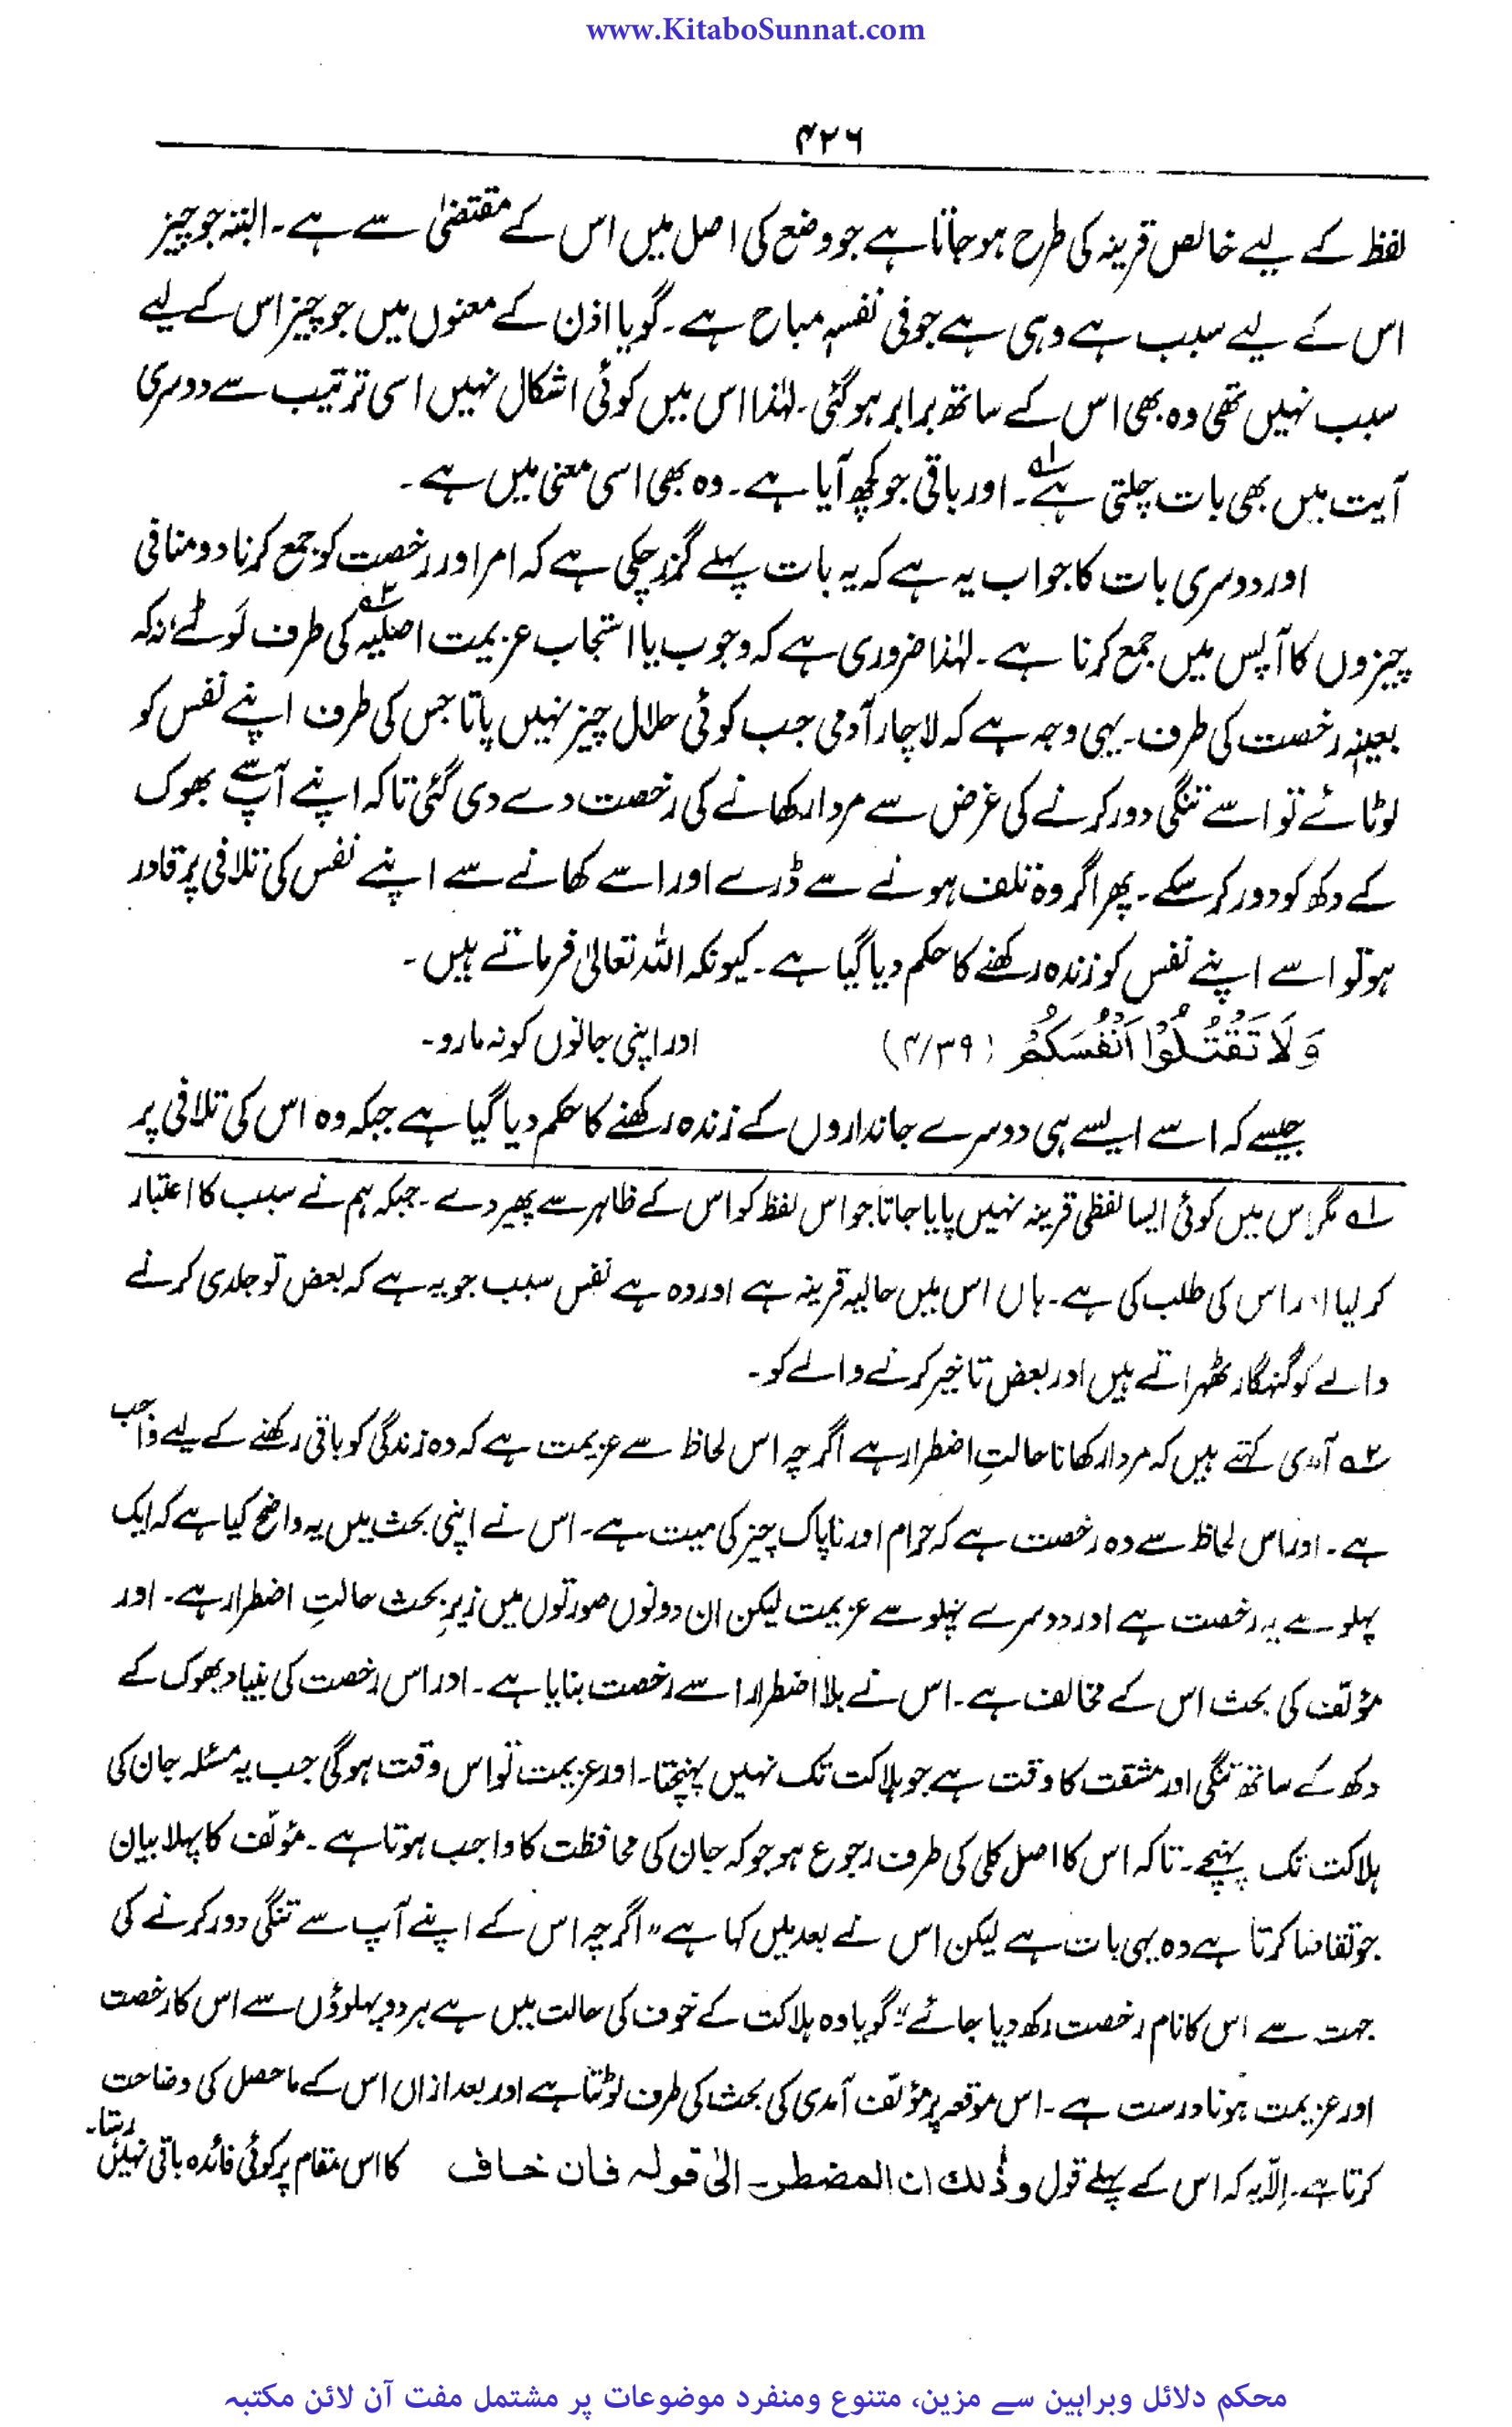 www.KitaboSunnat.com
۴۲۶
لفظ کے لیے خالص قرینہ کی طرح ہو جاتا ہے جو وضع کی اصل میں اس کے مقتضیٰ سے ہے۔ البتہ جو چیز
اس کے لیے سبب ہے وہی ہے جو فی نفسہٖ مباح ہے۔ گویا اذن کے معنوں میں جو چیز اس کے لیے
سبب نہیں تھی وہ بھی اس کے ساتھ برابر ہو گئی۔ لہٰذا اس میں کوئی اشکال نہیں اسی ترتیب سے دوسری
آیت میں بھی بات چلتی ہے۱؎۔ اور باقی جو کچھ آیا ہے۔ وہ بھی اسی معنی میں ہے۔
اور دوسری بات کا جواب یہ ہے کہ یہ بات پہلے گزر چکی ہے کہ امر اور رخصت کو جمع کرنا دو منافی
چیزوں کا آپس میں جمع کرنا ہے۔ لہٰذا ضروری ہے کہ وجوب یا استجاب عزیمت اصلیہ۲؎ کی طرف لَوٹے، نہ کہ
بعینہٖ رخصت کی طرف۔ یہی وجہ ہے کہ لاچار آدمی جب کوئی حلال چیز نہیں پاتا جس کی طرف اپنے نفس کو
لوٹائے تو اسے تنگی دور کرنے کی غرض سے مردار کھانے کی رخصت دے دی گئی تاکہ اپنے آپ سے بھوک
کے دکھ کو دور کر سکے۔ پھر اگر وہ تلف ہونے سے ڈرے اور اسے کھانے سے اپنے نفس کی تلافی پر قادر
ہو تو اسے اپنے نفس کو زندہ رکھنے کا حکم دیا گیا ہے۔ کیونکہ اللہ تعالیٰ فرماتے ہیں۔
وَلَا تَقْتُلُوْا اَنْفُسَكُمْ (۴/۳۹) اور اپنی جانوں کو نہ مارو۔
جیسے کہ اسے ایسے ہی دوسرے جانداروں کے زندہ رکھنے کا حکم دیا گیا ہے جبکہ وہ اس کی تلافی پر
۱؎ مگر اس میں کوئی ایسا لفظی قرینہ نہیں پایا جاتا جو اس لفظ کو اس کے ظاہر سے پھیر دے۔ جبکہ ہم نے سبب کا اعتبار
کر لیا اور اس کی طلب کی ہے۔ ہاں اس میں حالیہ قرینہ ہے اور وہ ہے نفس سبب جو یہ ہے کہ بعض تو جلدی کرنے
والے کو گنہگار ٹھہراتے ہیں اور بعض تاخیر کرنے والے کو۔
۲؎ آمدی کہتے ہیں کہ مردار کھانا حالتِ اضطرار ہے اگرچہ اس لحاظ سے عزیمت ہے کہ وہ زندگی کو باقی رکھنے کے لیے واجب
ہے۔ اور اس لحاظ سے وہ رخصت ہے کہ حرام اور ناپاک چیز کی میت ہے۔ اس نے اپنی بحث میں یہ واضح کیا ہے کہ ایک
پہلو سے یہ رخصت ہے اور دوسرے پہلو سے عزیمت لیکن ان دونوں صورتوں میں زیرِ بحث حالتِ اضطرار ہے۔ اور
مؤلف کی بحث اس کے مخالف ہے۔ اس نے بلا اضطرار اسے رخصت بنایا ہے۔ اور اس رخصت کی بنیاد بھوک کے
دکھ کے ساتھ تنگی اور مشقت کا وقت ہے جو ہلاکت تک نہیں پہنچتا۔ اور عزیمت تو اس وقت ہو گی جب یہ مسئلہ جان کی
ہلاکت تک پہنچے۔ تاکہ اس کا اصل کلی کی طرف رجوع ہو جو کہ جان کی محافظت کا واجب ہوتا ہے۔ مؤلف کا پہلا بیان
جو تقاضا کرتا ہے وہ یہی بات ہے لیکن اس نے بعد میں کہا ہے "اگرچہ اس کے اپنے آپ سے تنگی دور کرنے کی
جہت سے اس کا نام رخصت رکھ دیا جائے"؛ گویا وہ ہلاکت کے خوف کی حالت میں ہے ہر دو پہلوؤں سے اس کا رخصت
اور عزیمت ہونا درست ہے۔ اس موقعہ پر مؤلف آمدی کی بحث کی طرف لوٹتا ہے اور بعد ازاں اس کے ماحصل کی وضاحت
کرتا ہے۔ اِلّا یہ کہ اس کے پہلے قول وذٰلك ان المضطر۔ الیٰ قولہ فان خاف کا اس مقام پر کوئی فائدہ باقی نہیں رہتا۔
محکم دلائل وبراہین سے مزین، متنوع ومنفرد موضوعات پر مشتمل مفت آن لائن مکتبہ